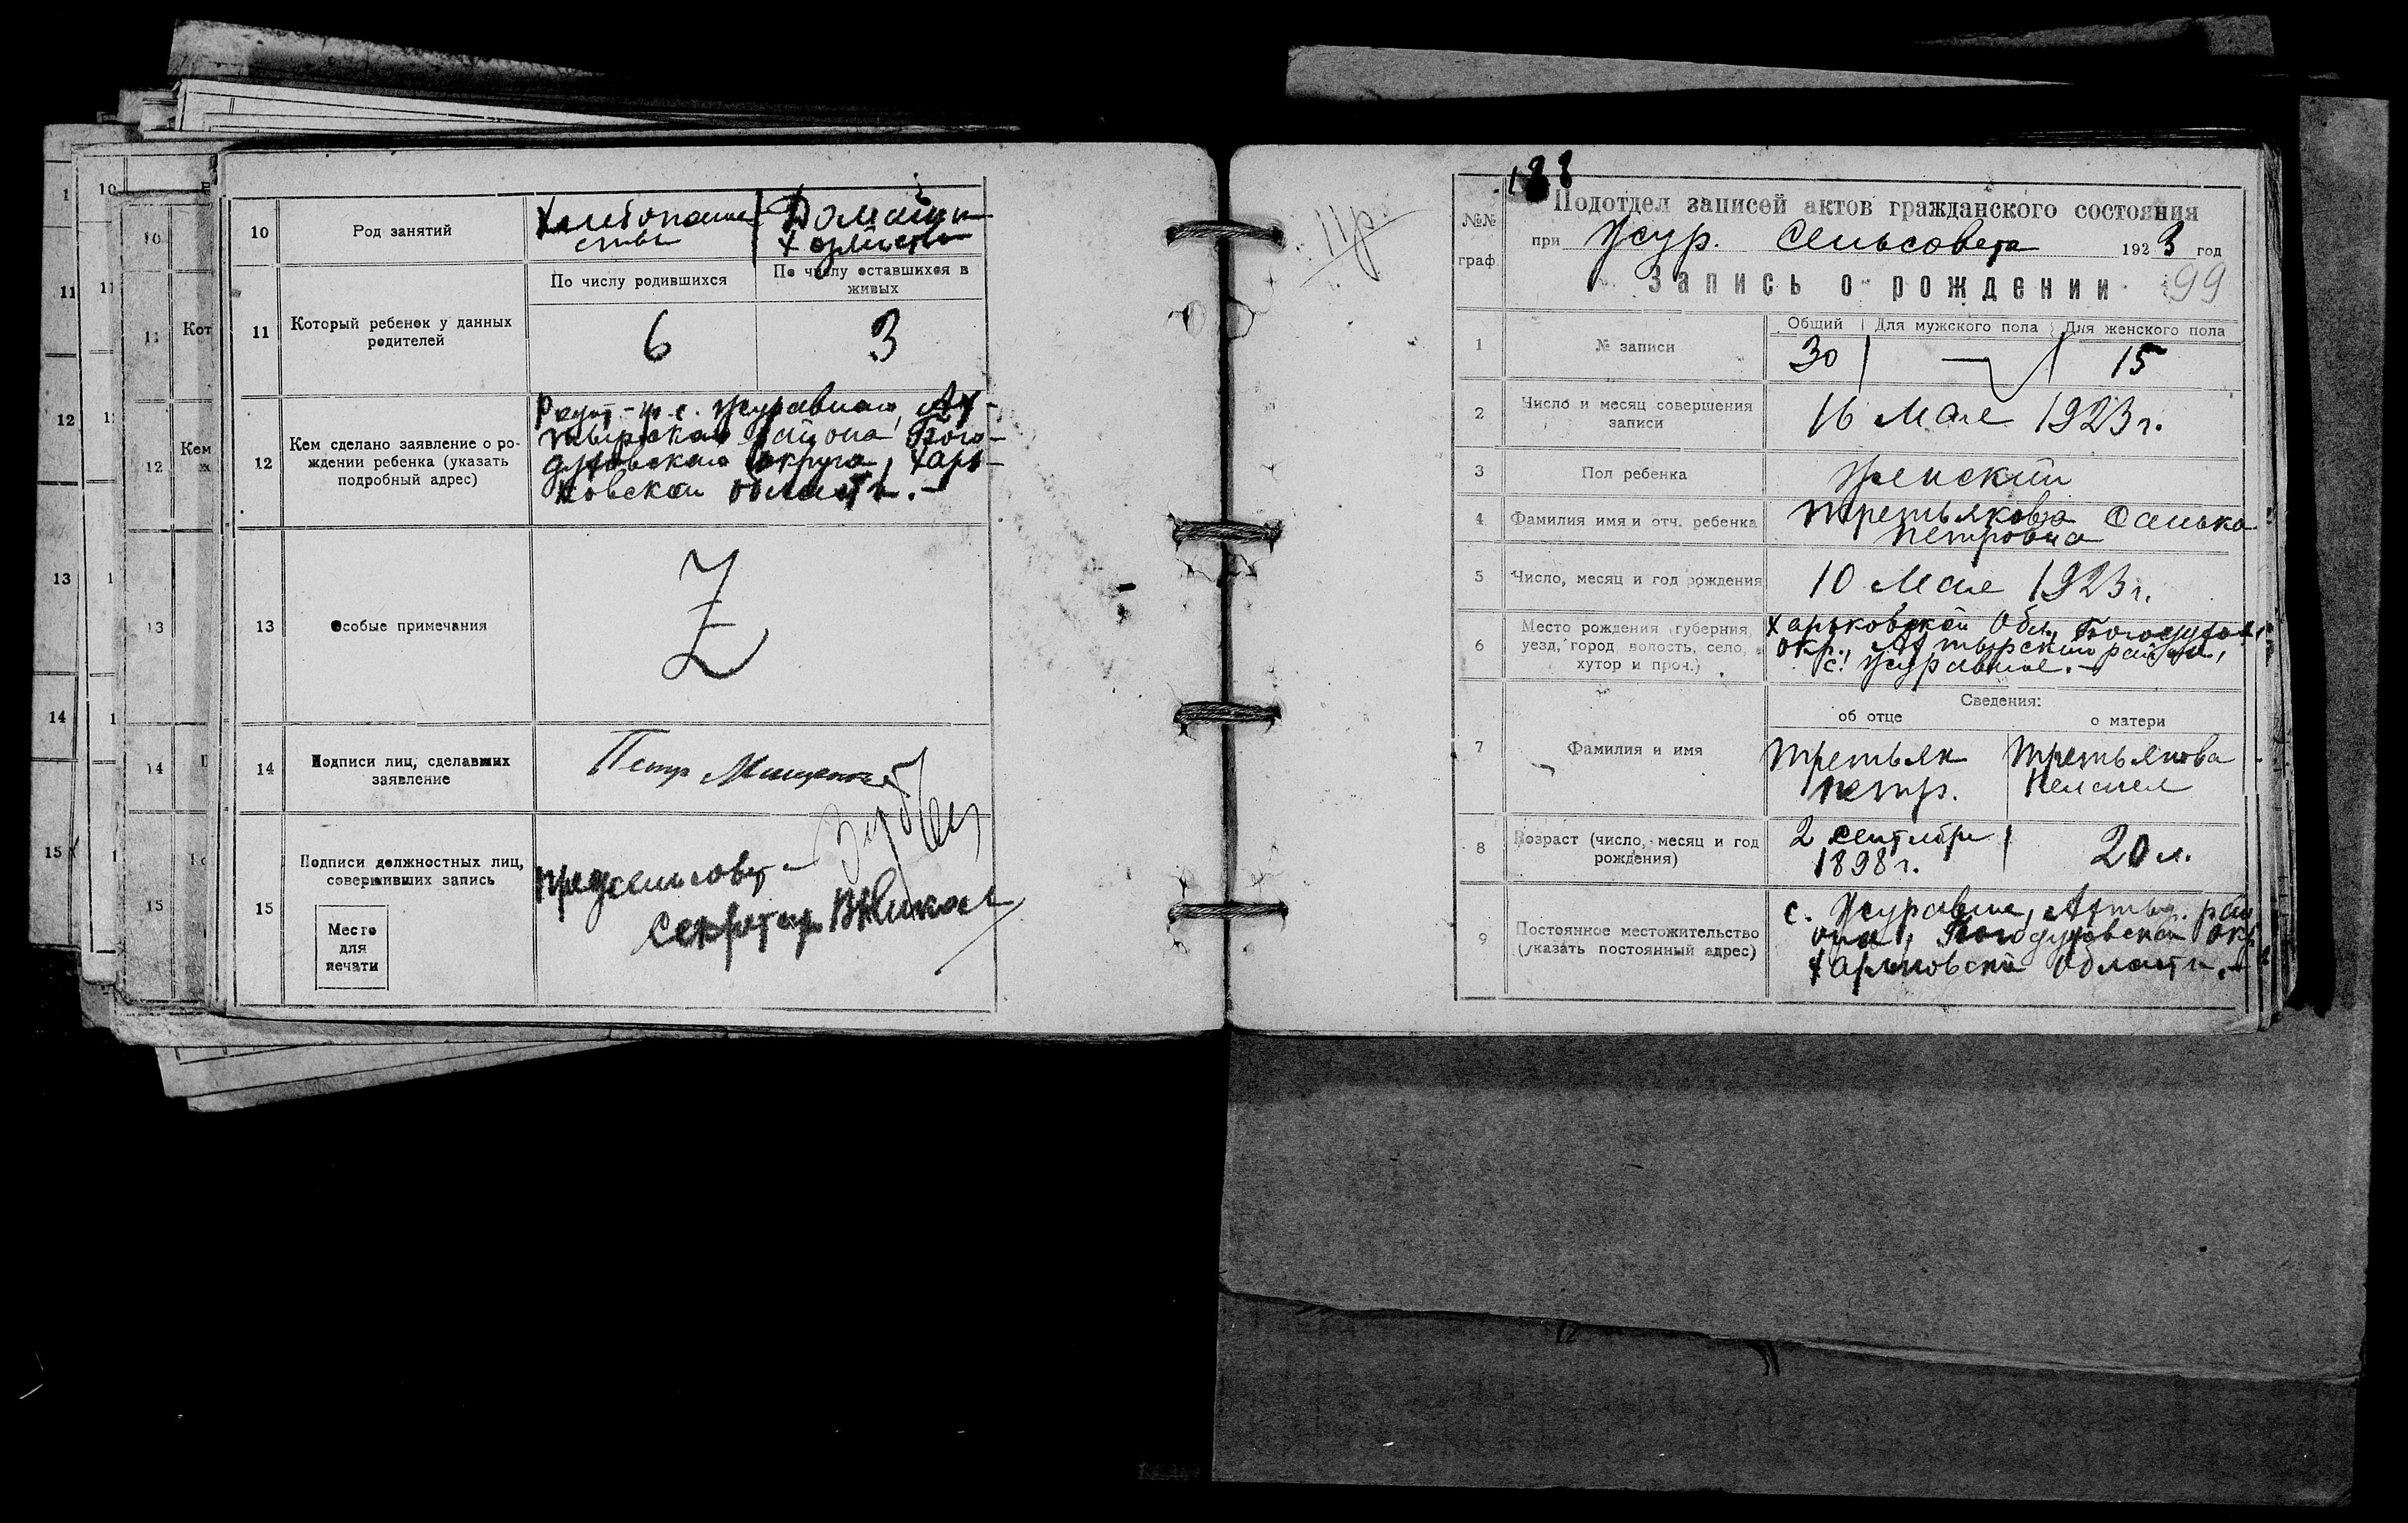 10 Род занятий Хлебопаше Домашн
ство хозяйство
11 Который ребенок у данных родителей
По числу родившихся По числу оставшихся в живых
6 3
12 Кем сделано заявление о ро-
ждении ребенка (указать
подробный адрес)
с. Журавного, Ах-
тырского района, Бого-
духовского округа, Харь-
ковской области. –
13 Особые примечания
Z
14 Подписи лиц, сделавших
заявление
Петр Мищенко
15 Подписи должностных лиц,
совершивших запись
Предсельсовета
Секретарь
Место
для
печати
10
11
12
13
14
15
Кот
Кем
11р.
188
№№
граф
Подотдел записей актов гражданского состояния
при Жур. Сельсовета 1923 год
Запись о рождении 99
1 № записи
Общий Для мужского пола Для женского пола
30 — 15
2 Число и месяц совершения
записи
16 Мая 1923 г.
3 Пол ребенка женский
4 Фамилия имя и отч. ребенка Третьякова Санька
Петровна
5 Число, месяц и год рождения 10 Мая 1923 г.
6 Место рождения (губерния,
уезд, город волость, село,
хутор и проч.)
Харьковской Обл., Богодухов.
окр., Ахтырский района,
с. Журавное. –
Сведения:
об отце о матери
7 Фамилия и имя
Третьяк Третьякова
Петр.
8 Возраст (число, месяц и год
рождения)
2 сентября
1898 г. 20 л.
9 Постоянное местожительство
(указать постоянный адрес)
с. Журавне, Ахтыр. рай
она, Богодуховской окр.
Харьковской области. –